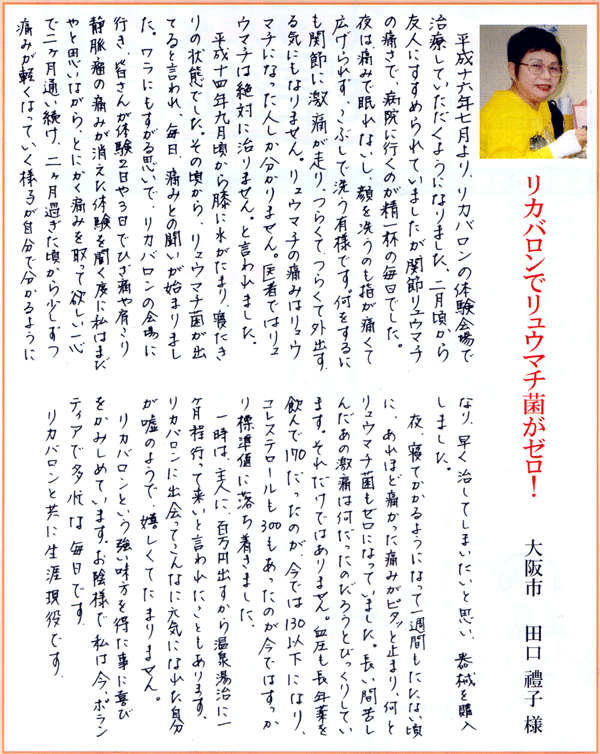 リカバロンでリュウマチ菌がゼロ!
大阪市　田口 禮子 様
平成十六年七月より、リカバロンの体験会場で
治療していただくようになりました。二月頃から
友人にすすめられていましたが関節リュウマチ
の痛さで、病院に行くのが精一杯の毎日でした。
夜は痛みで眠れないし、顔を洗うのも指が痛くて
広げられず、こぶしで洗う有様です。何をするに
も関節に激痛が走り、つらくて、つらくて外出す
る気にもなりません。リュウマチの痛みはリュウ
マチになった人しか分かりません。医者ではリュ
ウマチは絶対に治りません。と言われました。
平成十四年九月頃から膝に水がたまり、寝たき
りの状態でした。その頃から、リュウマチ菌が出
てると言われ、毎日、痛みとの闘いが始まりまし
た。ワラにもすがる思いで、リカバロンの会場に
行き、皆さんが体験2日や3日でひざ痛や肩こり
静脈瘤の痛みが消えた体験を聞く度に私はまだ
やと思いながら、とにかく痛みを取って欲しい一心
で二ヶ月通い続け、二ヶ月過ぎた頃から少しずつ
痛みが軽くなっていく様子が自分で分かるように
なり、早く治してしまいたいと思い、器械を購入
しました。
夜、寝てかかるようになって一週間もたたない頃
に、あれほど痛かった痛みがピタッと止まり、何と
リュウマチ菌もゼロになっていました。長い間苦し
んだあの激痛は何だったのだろうとびっくりしてい
ます。それだけではありません。血圧も長年薬を
飲んで170だったのが、今では130以下になり、
コレステロールも300もあったのが今ではすっか
り標準値に落ち着きました。
一時は、主人に、百万円出すから温泉湯治に一
ヶ月程行って来いと言われたこともあります。
リカバロンに出会ってこんなに元気になれた自分
が嘘のようで、嬉しくてたまりません。
リカバロンという強い味方を得た事に喜び
をかみしめています。お陰様で私は今、ボラン
ティアで多忙な毎日です。
リカバロンと共に生涯現役です。